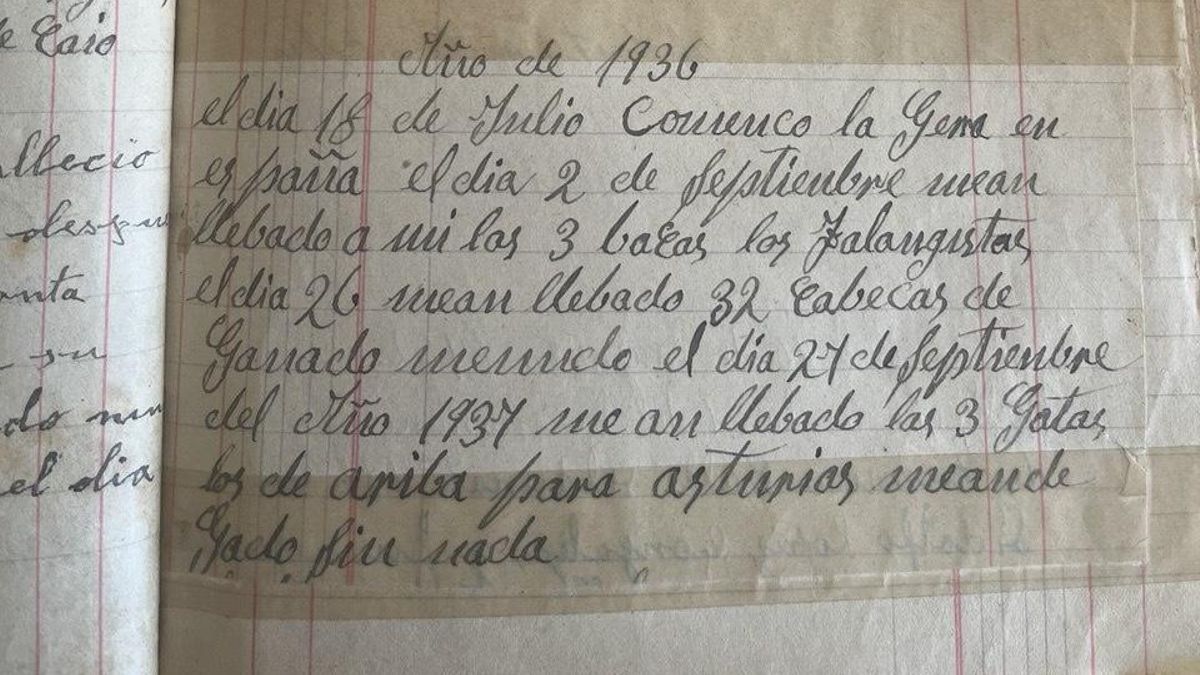 e Caio
Año de 1936
el dia 18 de Julio Comenco la Gerra en
llecio
españa el dia 2 de Septienbre mean
desgu
llebado a mi las 3 bacas los Falangistas
nta
el dia 26 mean llebado 32 Cabecas de
su
Ganado menudo el dia 27 de Septienbre
do mu
del Año 1937 me an llebado las 3 Gatas
el dia
los de ariba para asturias meande
Gado Sin nada